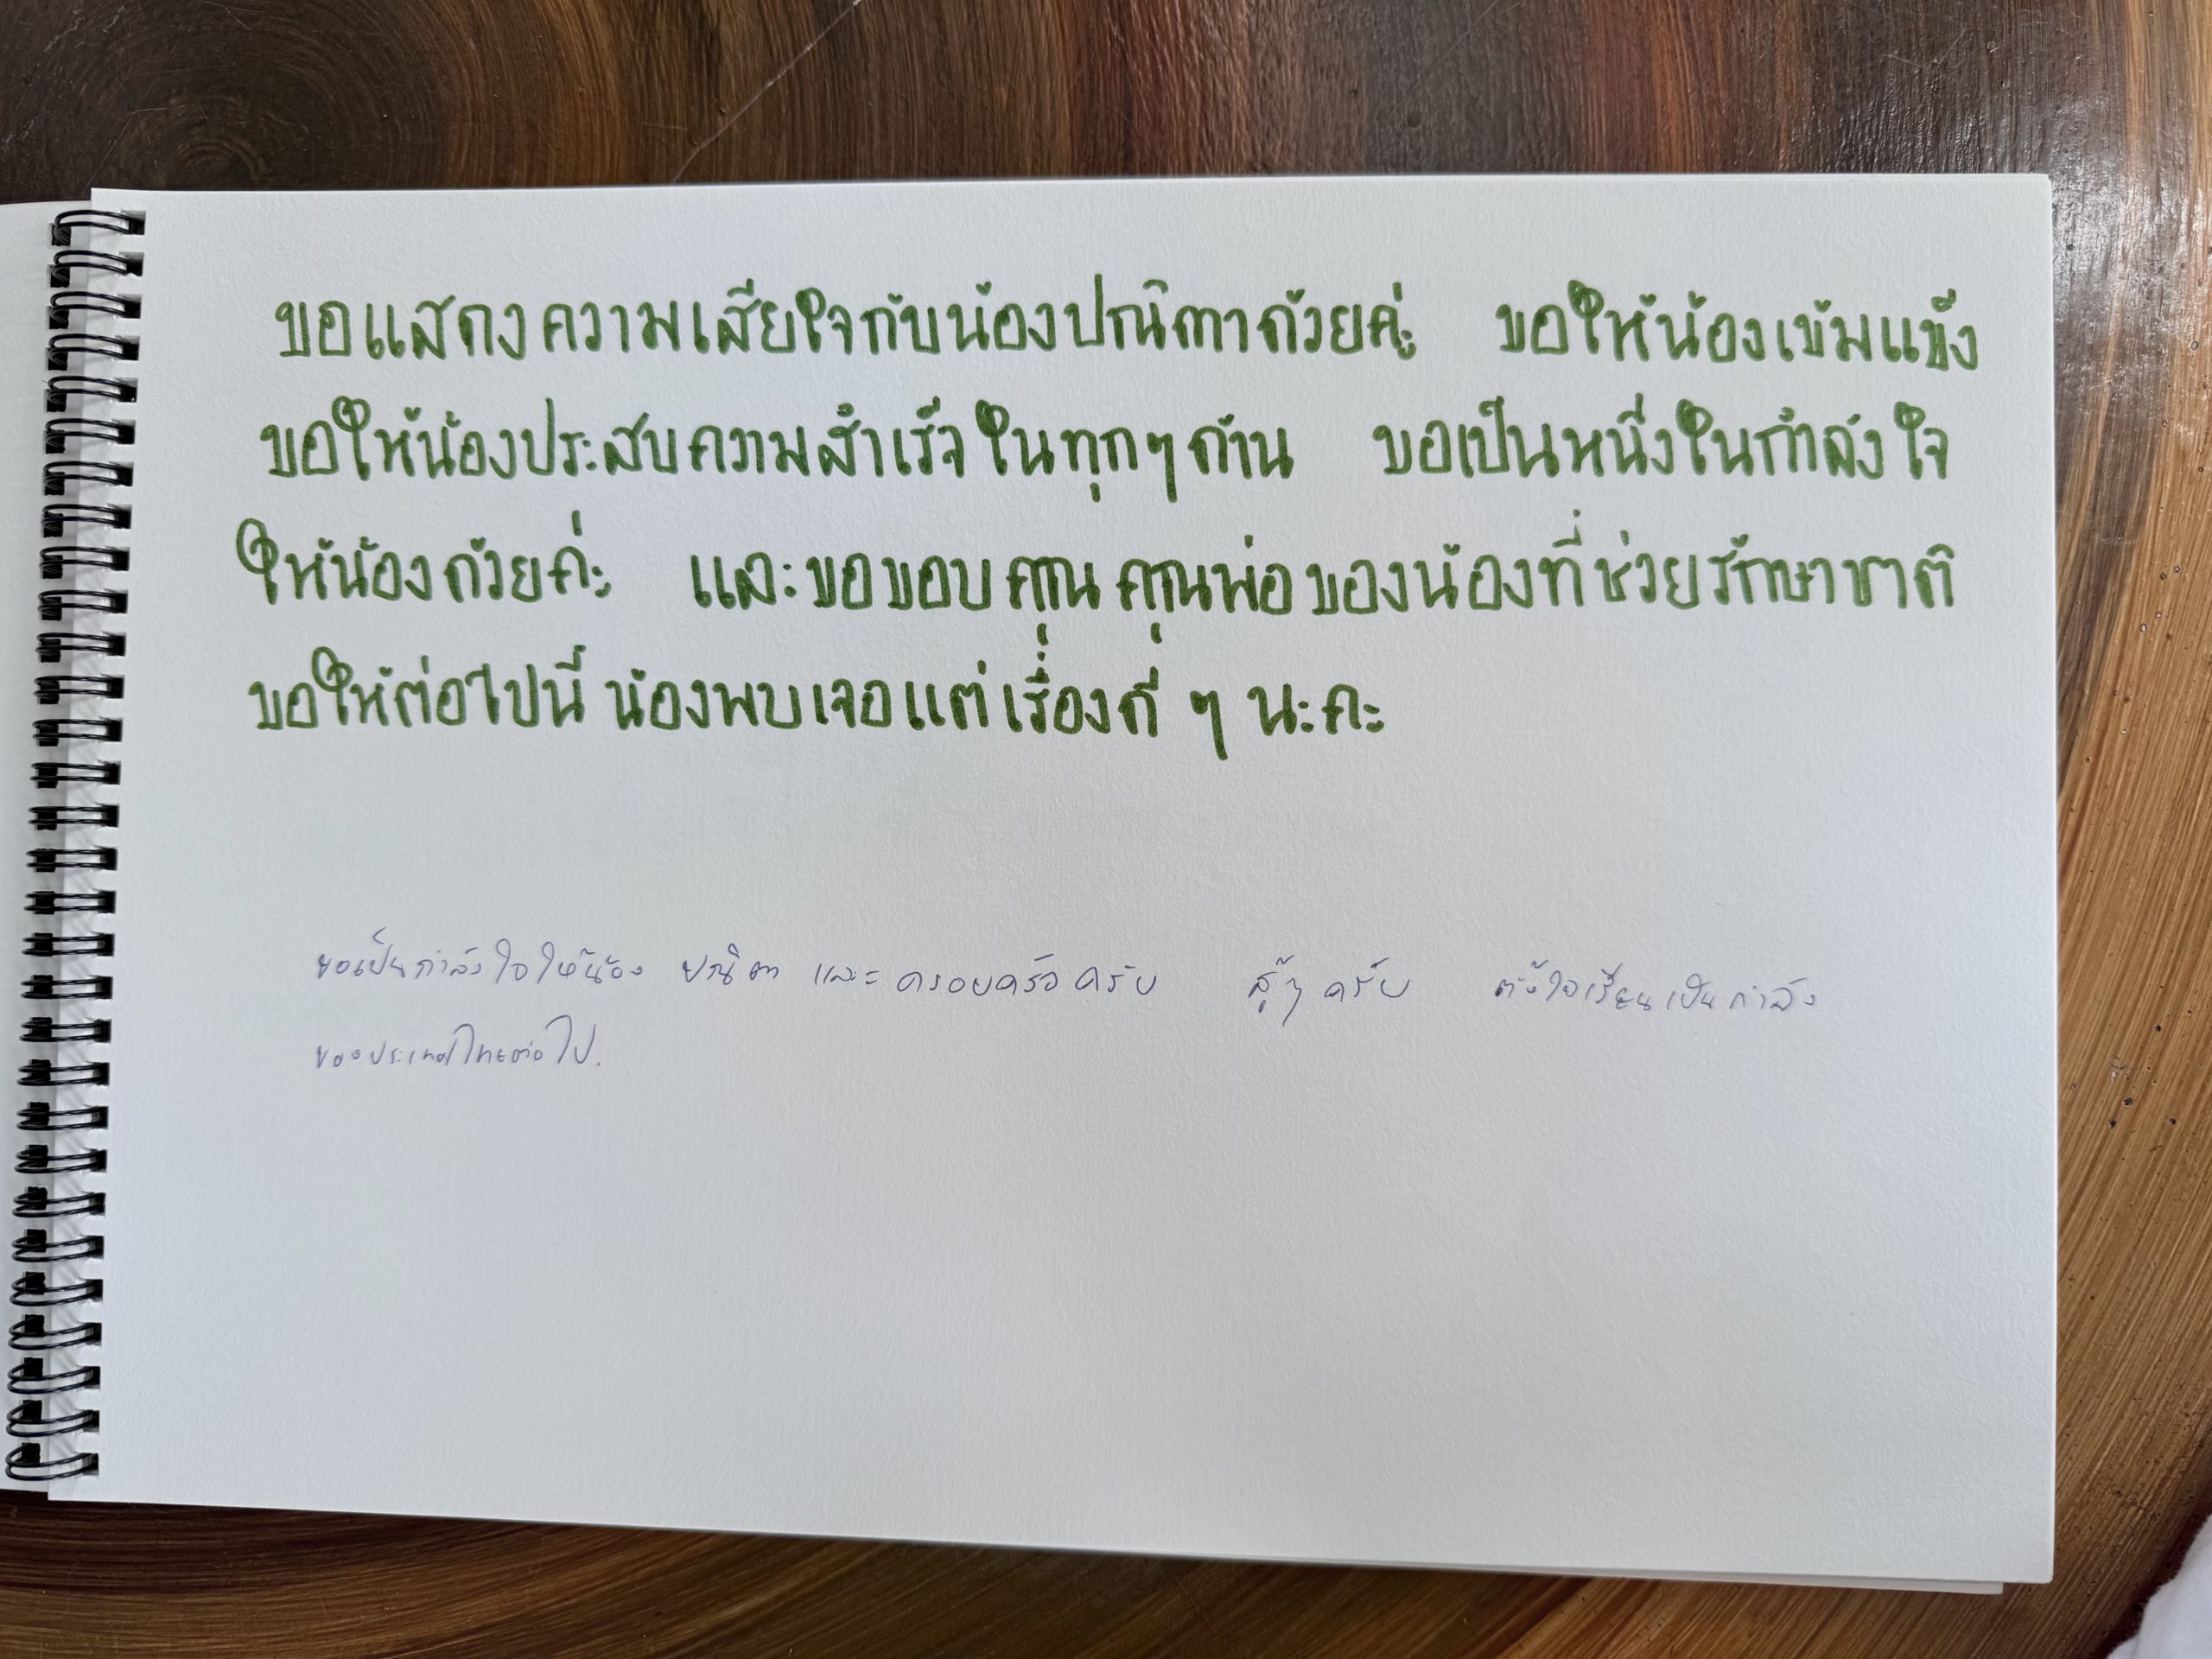 ขอแสดงความเสียใจกับน้องปณิตาด้วยค่ะ ขอให้น้องเข้มแข็ง
ขอให้น้องประสบความสำเร็จในทุกๆด้าน ขอเป็นหนึ่งในกำลังใจ
ให้น้องด้วยค่ะ และขอขอบคุณคุณพ่อของน้องที่ช่วยรักษาชาติ
ขอให้ต่อไปนี้ น้องพบเจอแต่เรื่องดี ๆ นะคะ
ขอเป็นกำลังใจให้น้อง ปณิตา และ ครอบครัว ครับ สู้ๆ ครับ ตั้งใจเรียนเป็นกำลัง
ของประเทศไทยต่อไป.